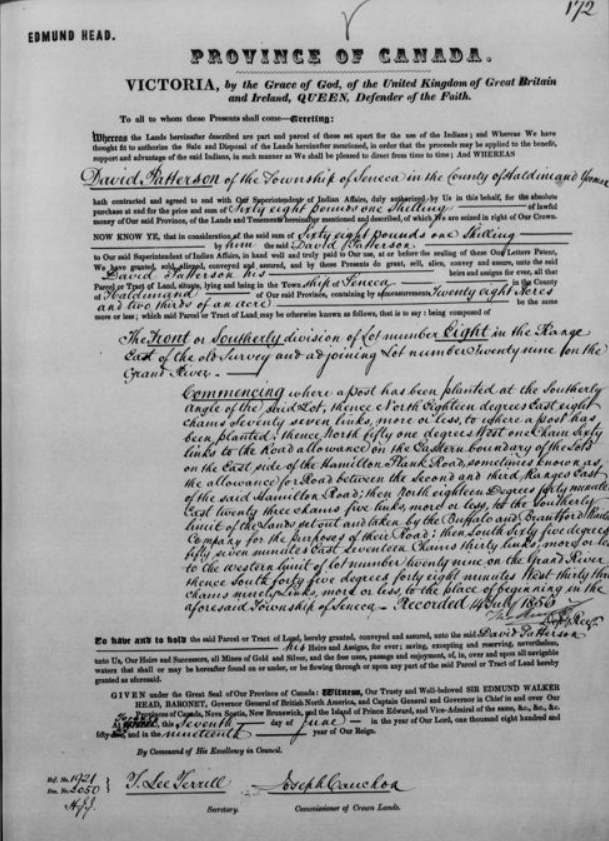 172
EDMUND HEAD.
PROVINCE OF CANADA.
VICTORIA, by the Grace of God, of the United Kingdom of Great Britain
and Ireland, QUEEN, Defender of the Faith.
To all to whom these Presents shall come—Greeting:
Whereas the Lands hereinafter described are part and parcel of these set apart for the use of the Indians; and Whereas We have
thought fit to authorize the Sale and Disposal of the Lands hereinafter mentioned, in order that the proceeds may be applied to the benefit,
support and advantage of the said Indians, in such manner as We shall be pleased to direct from time to time; And WHEREAS
David Patterson of the Township of Seneca in the County of Haldimand Yeoman
hath contracted and agreed to and with Our Superintendent of Indian Affairs, duly authorized by Us in this behalf, for the absolute
purchase at and for the price and sum of Sixty eight pounds one Shilling of lawful
money of Our said Province, of the Lands and Tenements hereinafter mentioned and described, of which We are seized in right of Our Crown.
NOW KNOW YE, that in consideration of the said sum of Sixty eight pounds one Shilling
by him the said David Patterson
to Our said Superintendent of Indian Affairs, in hand well and truly paid to Our use, at or before the sealing of these Our Letters Patent,
We have granted, sold, aliened, conveyed and assured, and by these Presents do grant, sell, alien, convey and assure, unto the said
David Patterson his heirs and assigns for ever, all that
Parcel or Tract of Land, situate, lying and being in the Township of Seneca in the County
of Haldimand of Our said Province, containing by admeasurement Twenty eight Acres
and two thirds of an acre be the same
more or less; which said Parcel or Tract of Land may be otherwise known as follows, that is to say: being composed of
The Front or Southerly division of Lot number Eight in the Range
East of the old Survey and adjoining Lot number Twenty nine on the
Grand River.
Commencing where a post has been planted at the Southerly
angle of the said Lot, thence North Eighteen degrees East eight
chains Seventy seven links, more or less, to where a post has
been planted; thence North fifty one degrees West one Chain Sixty
links to the Road allowance on the Eastern boundary of the Lots
on the East side of the Hamilton Plank Road, sometimes known as
the allowance for Road between the Second and third Ranges East
of the said Hamilton Road; then North eighteen Degrees forty minutes
East twenty three chains five links, more or less, to the Southerly
limit of the Lands set out and taken by the Buffalo and Brantford
Company for the purposes of their Road; then South Sixty five degrees
fifty seven minutes East Seventeen Chains thirty links, more or less
to the Western limit of lot number twenty nine on the Grand River
thence South forty five degrees forty eight minutes West thirty
chains ninety links, more or less, to the place of beginning in the
aforesaid Township of Seneca. Recorded 14 July 1856
To have and to hold the said Parcel or Tract of Land, hereby granted, conveyed and assured, unto the said David Patterson
his Heirs and Assigns, for ever; saving, excepting and reserving, nevertheless,
unto Us, Our Heirs and Successors, all Mines of Gold and Silver, and the free uses, passage and enjoyment, of, in, over and upon all navigable
waters that shall or may be hereafter found on or under, or be flowing through or upon any part of the said Parcel or Tract of Land hereby
granted as aforesaid.
GIVEN under the Great Seal of Our Province of Canada: Witness, Our Trusty and Well-beloved SIR EDMUND WALKER
HEAD, BARONET, Governor General of British North America, and Captain General and Governor in Chief in and over Our
Provinces of Canada, Nova Scotia, New Brunswick, and the Island of Prince Edward, and Vice-Admiral of the same, &c., &c., &c.
this Seventh day of June in the year of Our Lord, one thousand eight hundred and
fifty and in the nineteenth year of Our Reign.
By Command of His Excellency in Council.
Ref. No. 1921
2050
T. Lee Terrill Joseph Cauchon
Secretary. Commissioner of Crown Lands.